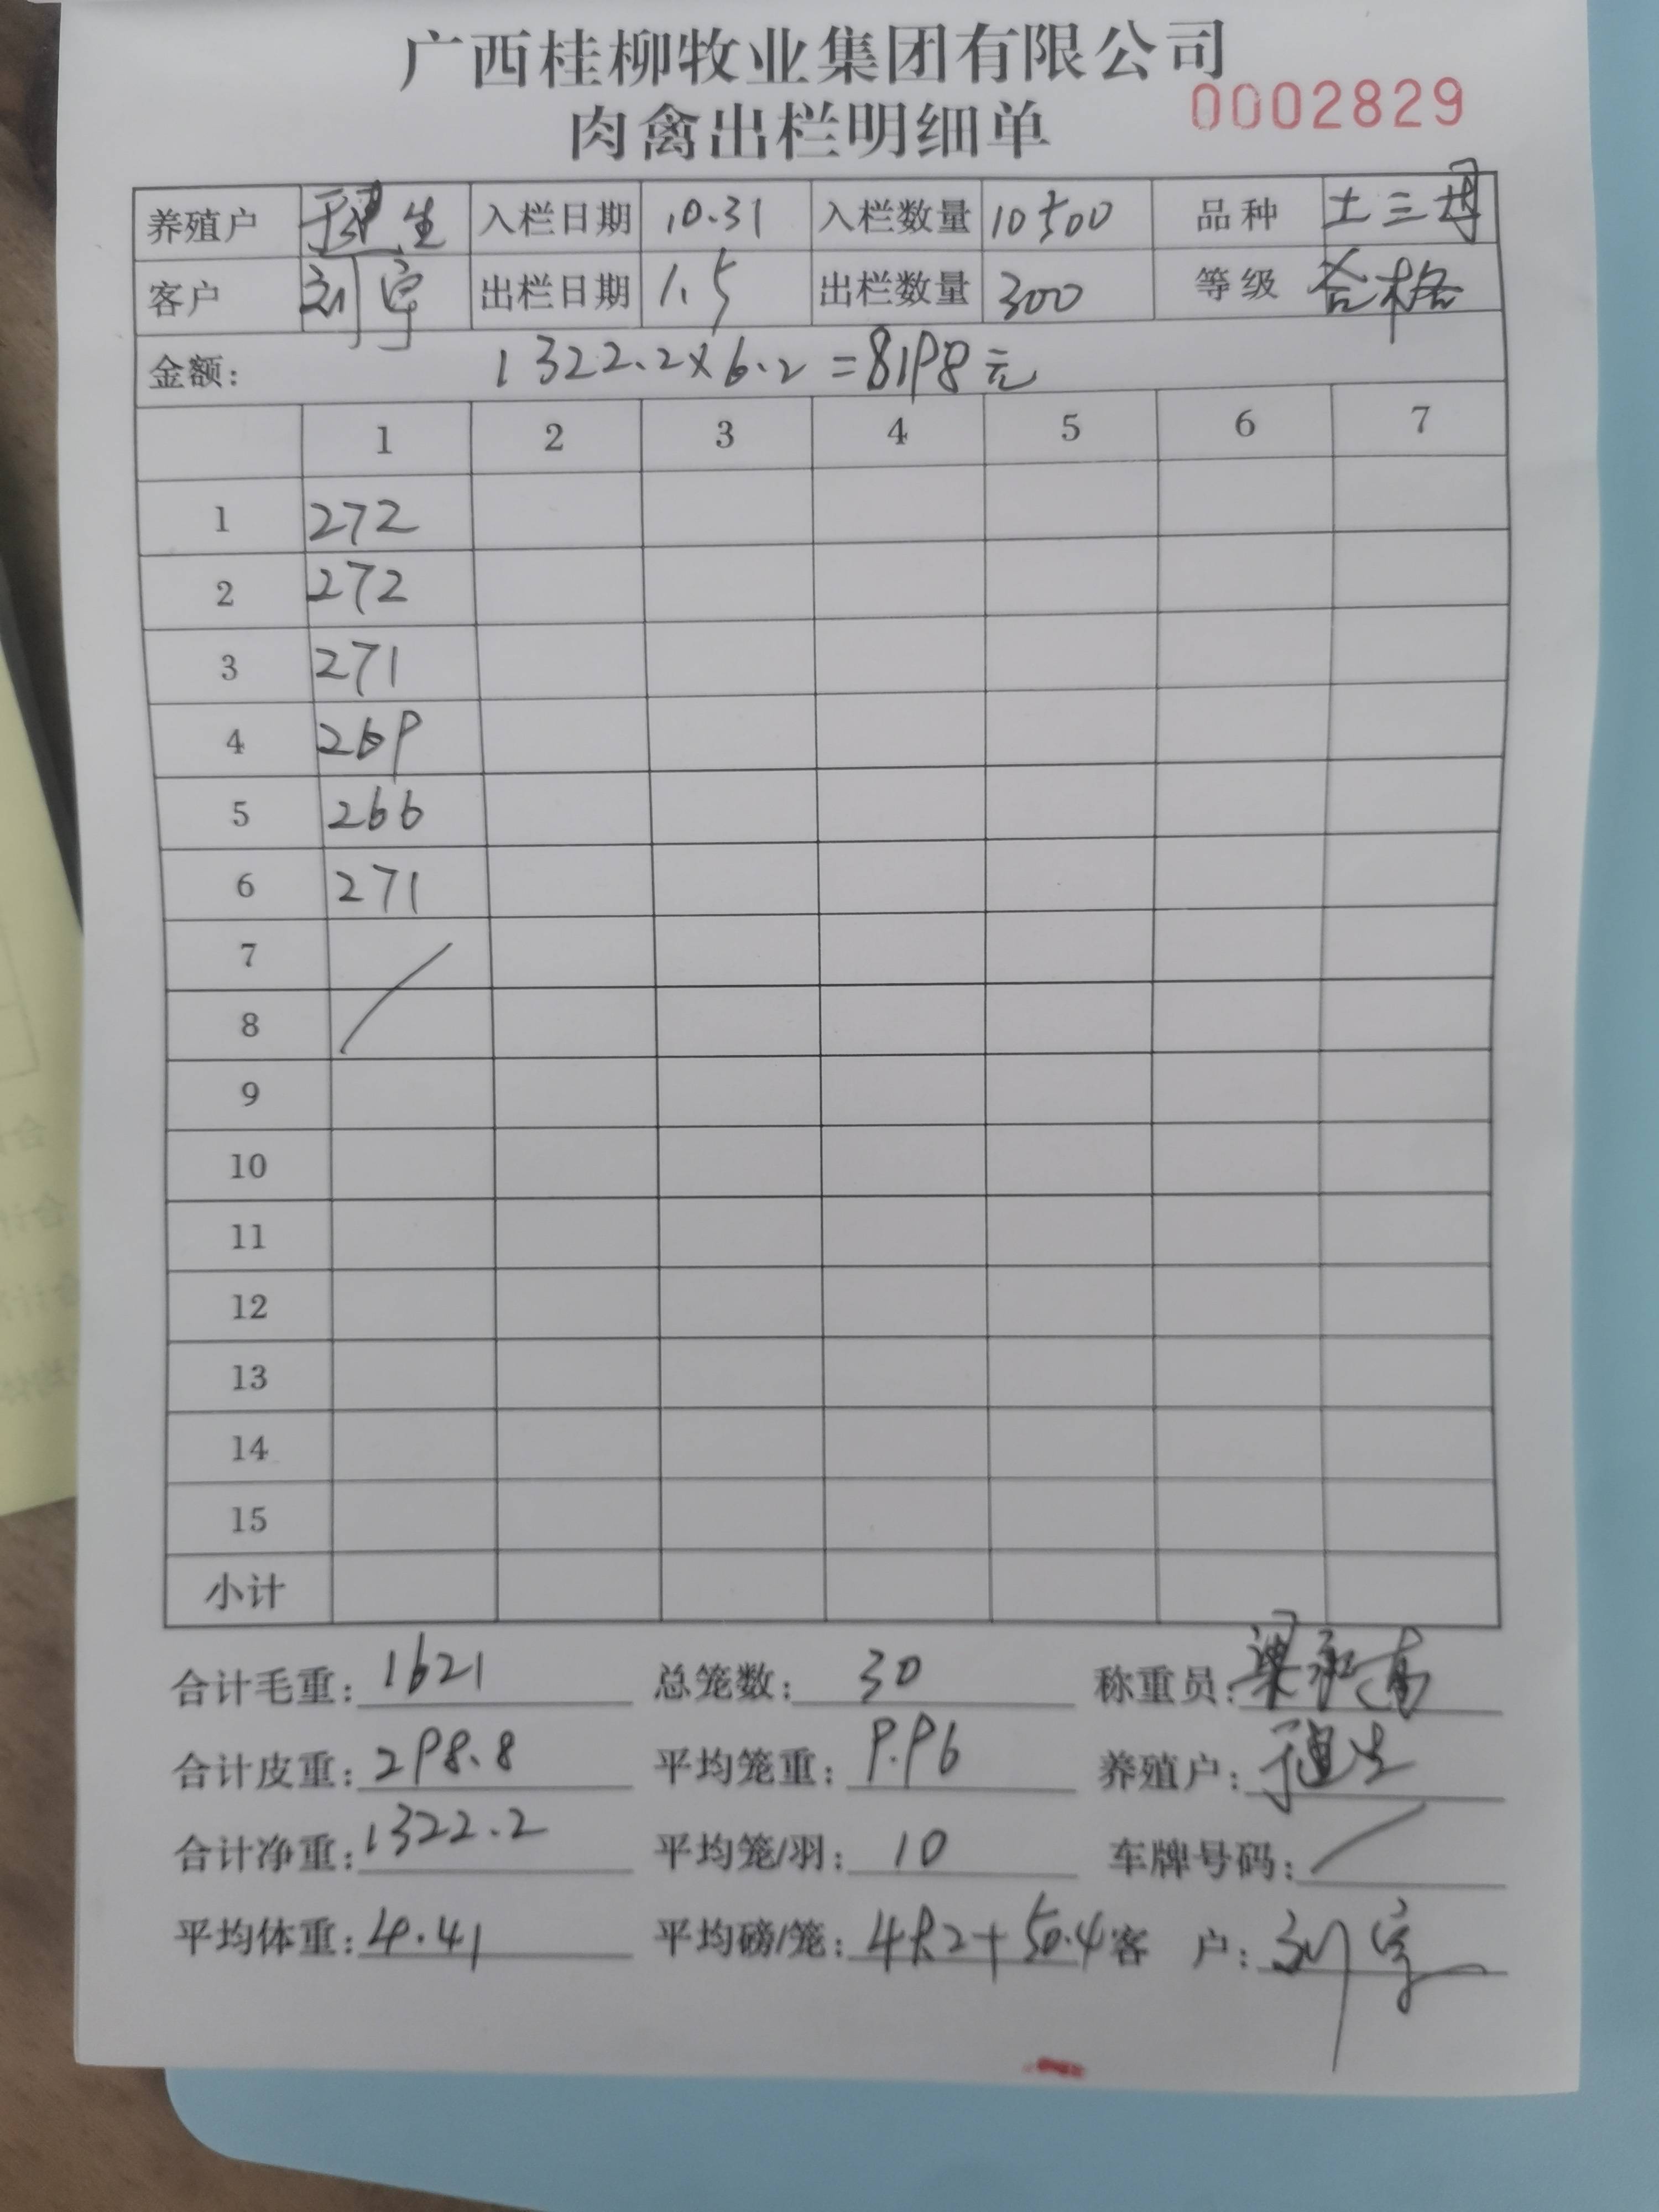 广西桂柳牧业集团有限公司
肉禽出栏明细单 0002829
养殖户 生 入栏日期 10.31 入栏数量 10500 品种 土三
客户 刘宇 出栏日期 1.5 出栏数量 300 等级 合格
金额: 1322.2×6.2=8198元
1 2 3 4 5 6 7
1 272
2 272
3 271
4 269
5 266
6 271
7
8
9
10
11
12
13
14
15
小计
合计毛重: 1621 总笼数: 30 称重员: 梁
合计皮重: 298.8 平均笼重: 9.96 养殖户: 生
合计净重: 1322.2 平均笼/羽: 10 车牌号码:
平均体重: 4.41 平均磅/笼: 48.2+50.4 客户: 刘宇